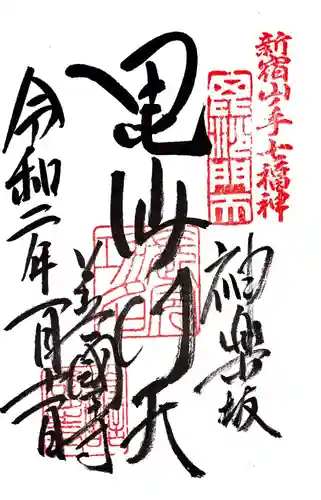 新宿山ノ手七福神
神楽坂
毘沙門天
善國寺
令和二年一月十一日